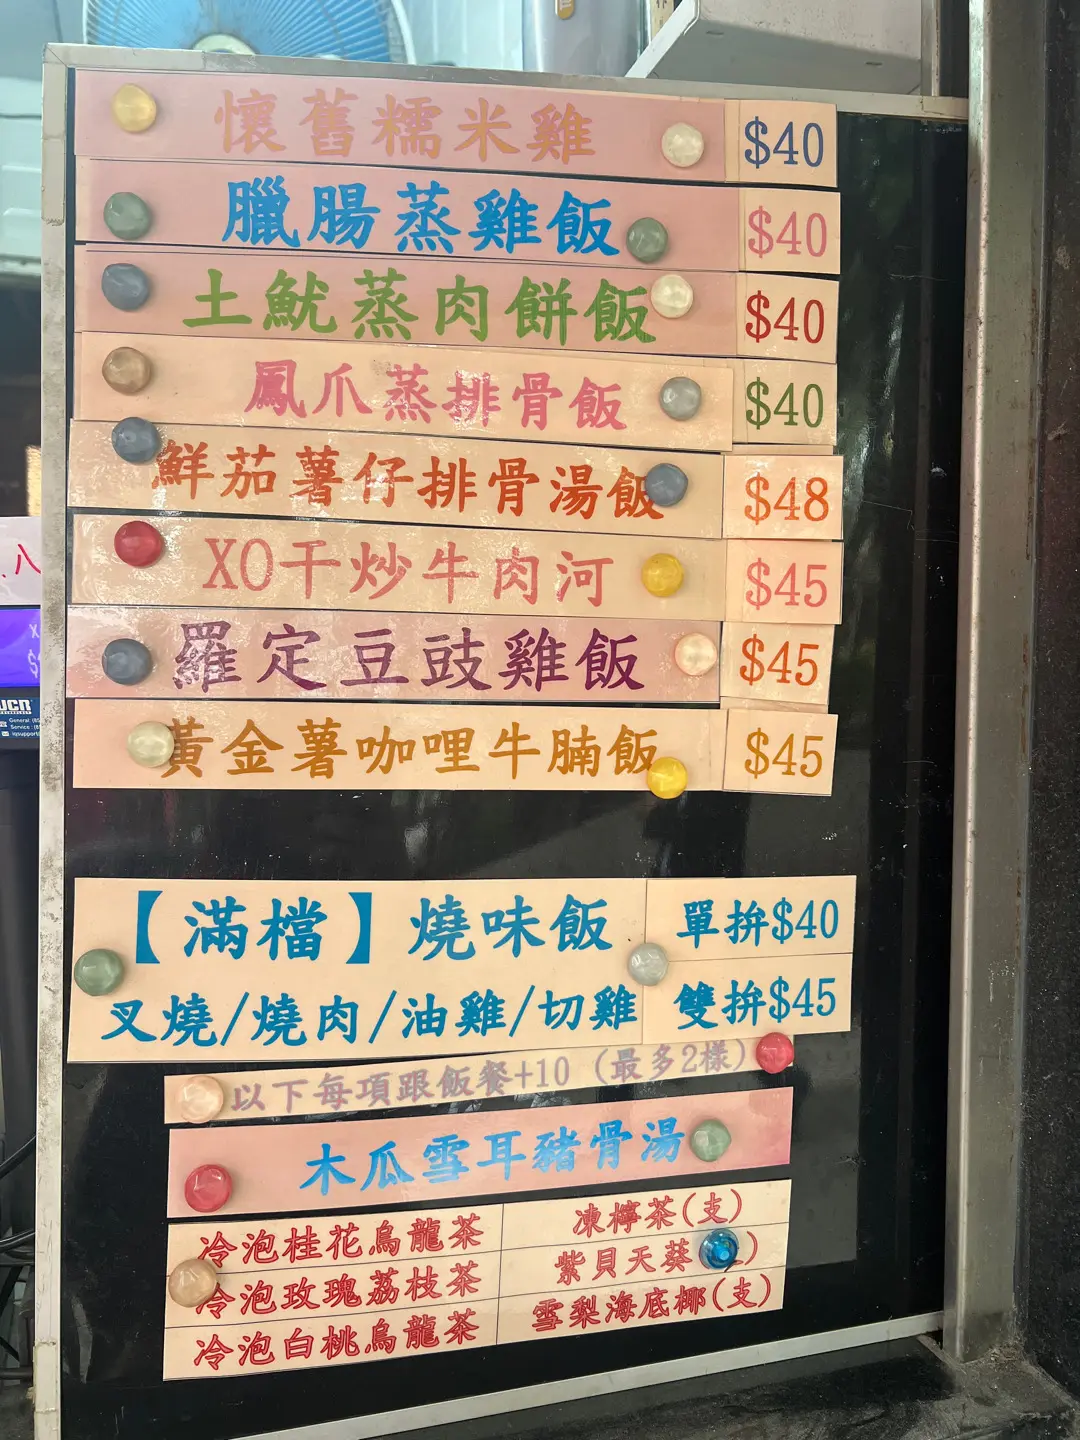 懷舊糯米雞 $40
臘腸蒸雞飯 $40
土魷蒸肉餅飯 $40
鳳爪蒸排骨飯 $40
鮮茄薯仔排骨湯飯 $48
XO干炒牛肉河 $45
羅定豆豉雞飯 $45
黃金薯咖哩牛腩飯 $45
【滿檔】燒味飯 單拚$40
叉燒/燒肉/油雞/切雞 雙拚$45
以下每項跟飯餐+10 (最多2樣)
木瓜雪耳豬骨湯
冷泡桂花烏龍茶 凍檸茶(支)
冷泡玫瑰荔枝茶 紫貝天葵
冷泡白桃烏龍茶 雪梨海底椰(支)
General:
Service: